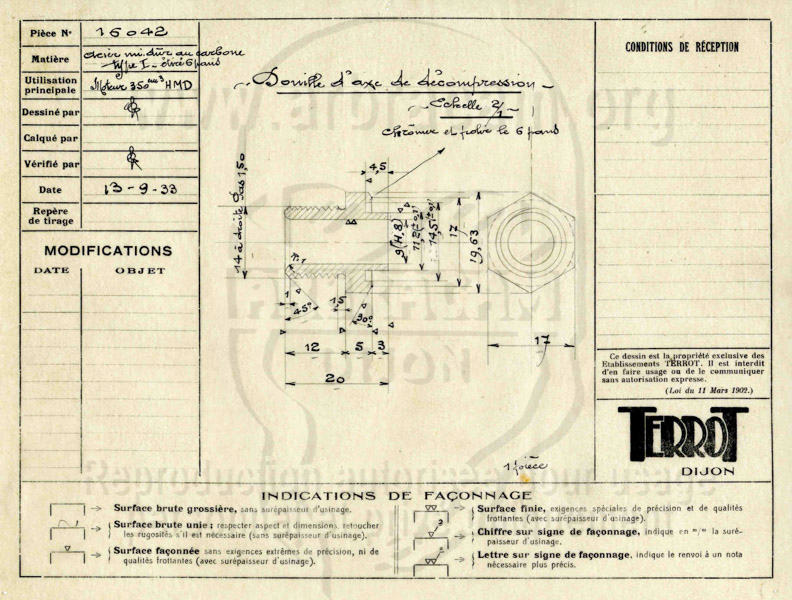 Pièce N° 15042
Matière acier mi-dur au carbone
type I - étiré 6 pans
Utilisation principale Moteur 350 cm³ HMD
Dessiné par
Calqué par
Vérifié par
Date 13-9-33
Repère de tirage
MODIFICATIONS
DATE OBJET
Douille d'axe de décompression
Echelle 2/1
chromer et polir le 6 pans
4,5
14 à droite Pas 1,50
9 (H.8)
14,5
17
19,63
1
45°
1,5
90°
12 5 3
20
17
1 pièce
CONDITIONS DE RÉCEPTION
Ce dessin est la propriété exclusive des
Etablissements TERROT. Il est interdit
d'en faire usage ou de le communiquer
sans autorisation expresse.
(Loi du 11 Mars 1902.)
TERROT
DIJON
INDICATIONS DE FAÇONNAGE
Surface brute grossière, sans surépaisseur d'usinage.
Surface brute unie ; respecter aspect et dimensions, retoucher
les rugosités s'il est nécessaire (sans surépaisseur d'usinage).
Surface façonnée sans exigences extrêmes de précision, ni de
qualités frottantes (avec surépaisseur d'usinage).
Surface finie, exigences spéciales de précision et de qualités
frottantes (avec surépaisseur d'usinage).
Chiffre sur signe de façonnage, indique en m/m la suré-
paisseur d'usinage.
Lettre sur signe de façonnage, indique le renvoi à un nota
nécessaire plus précis.
DIJON
Reproduction autorisée pour usage